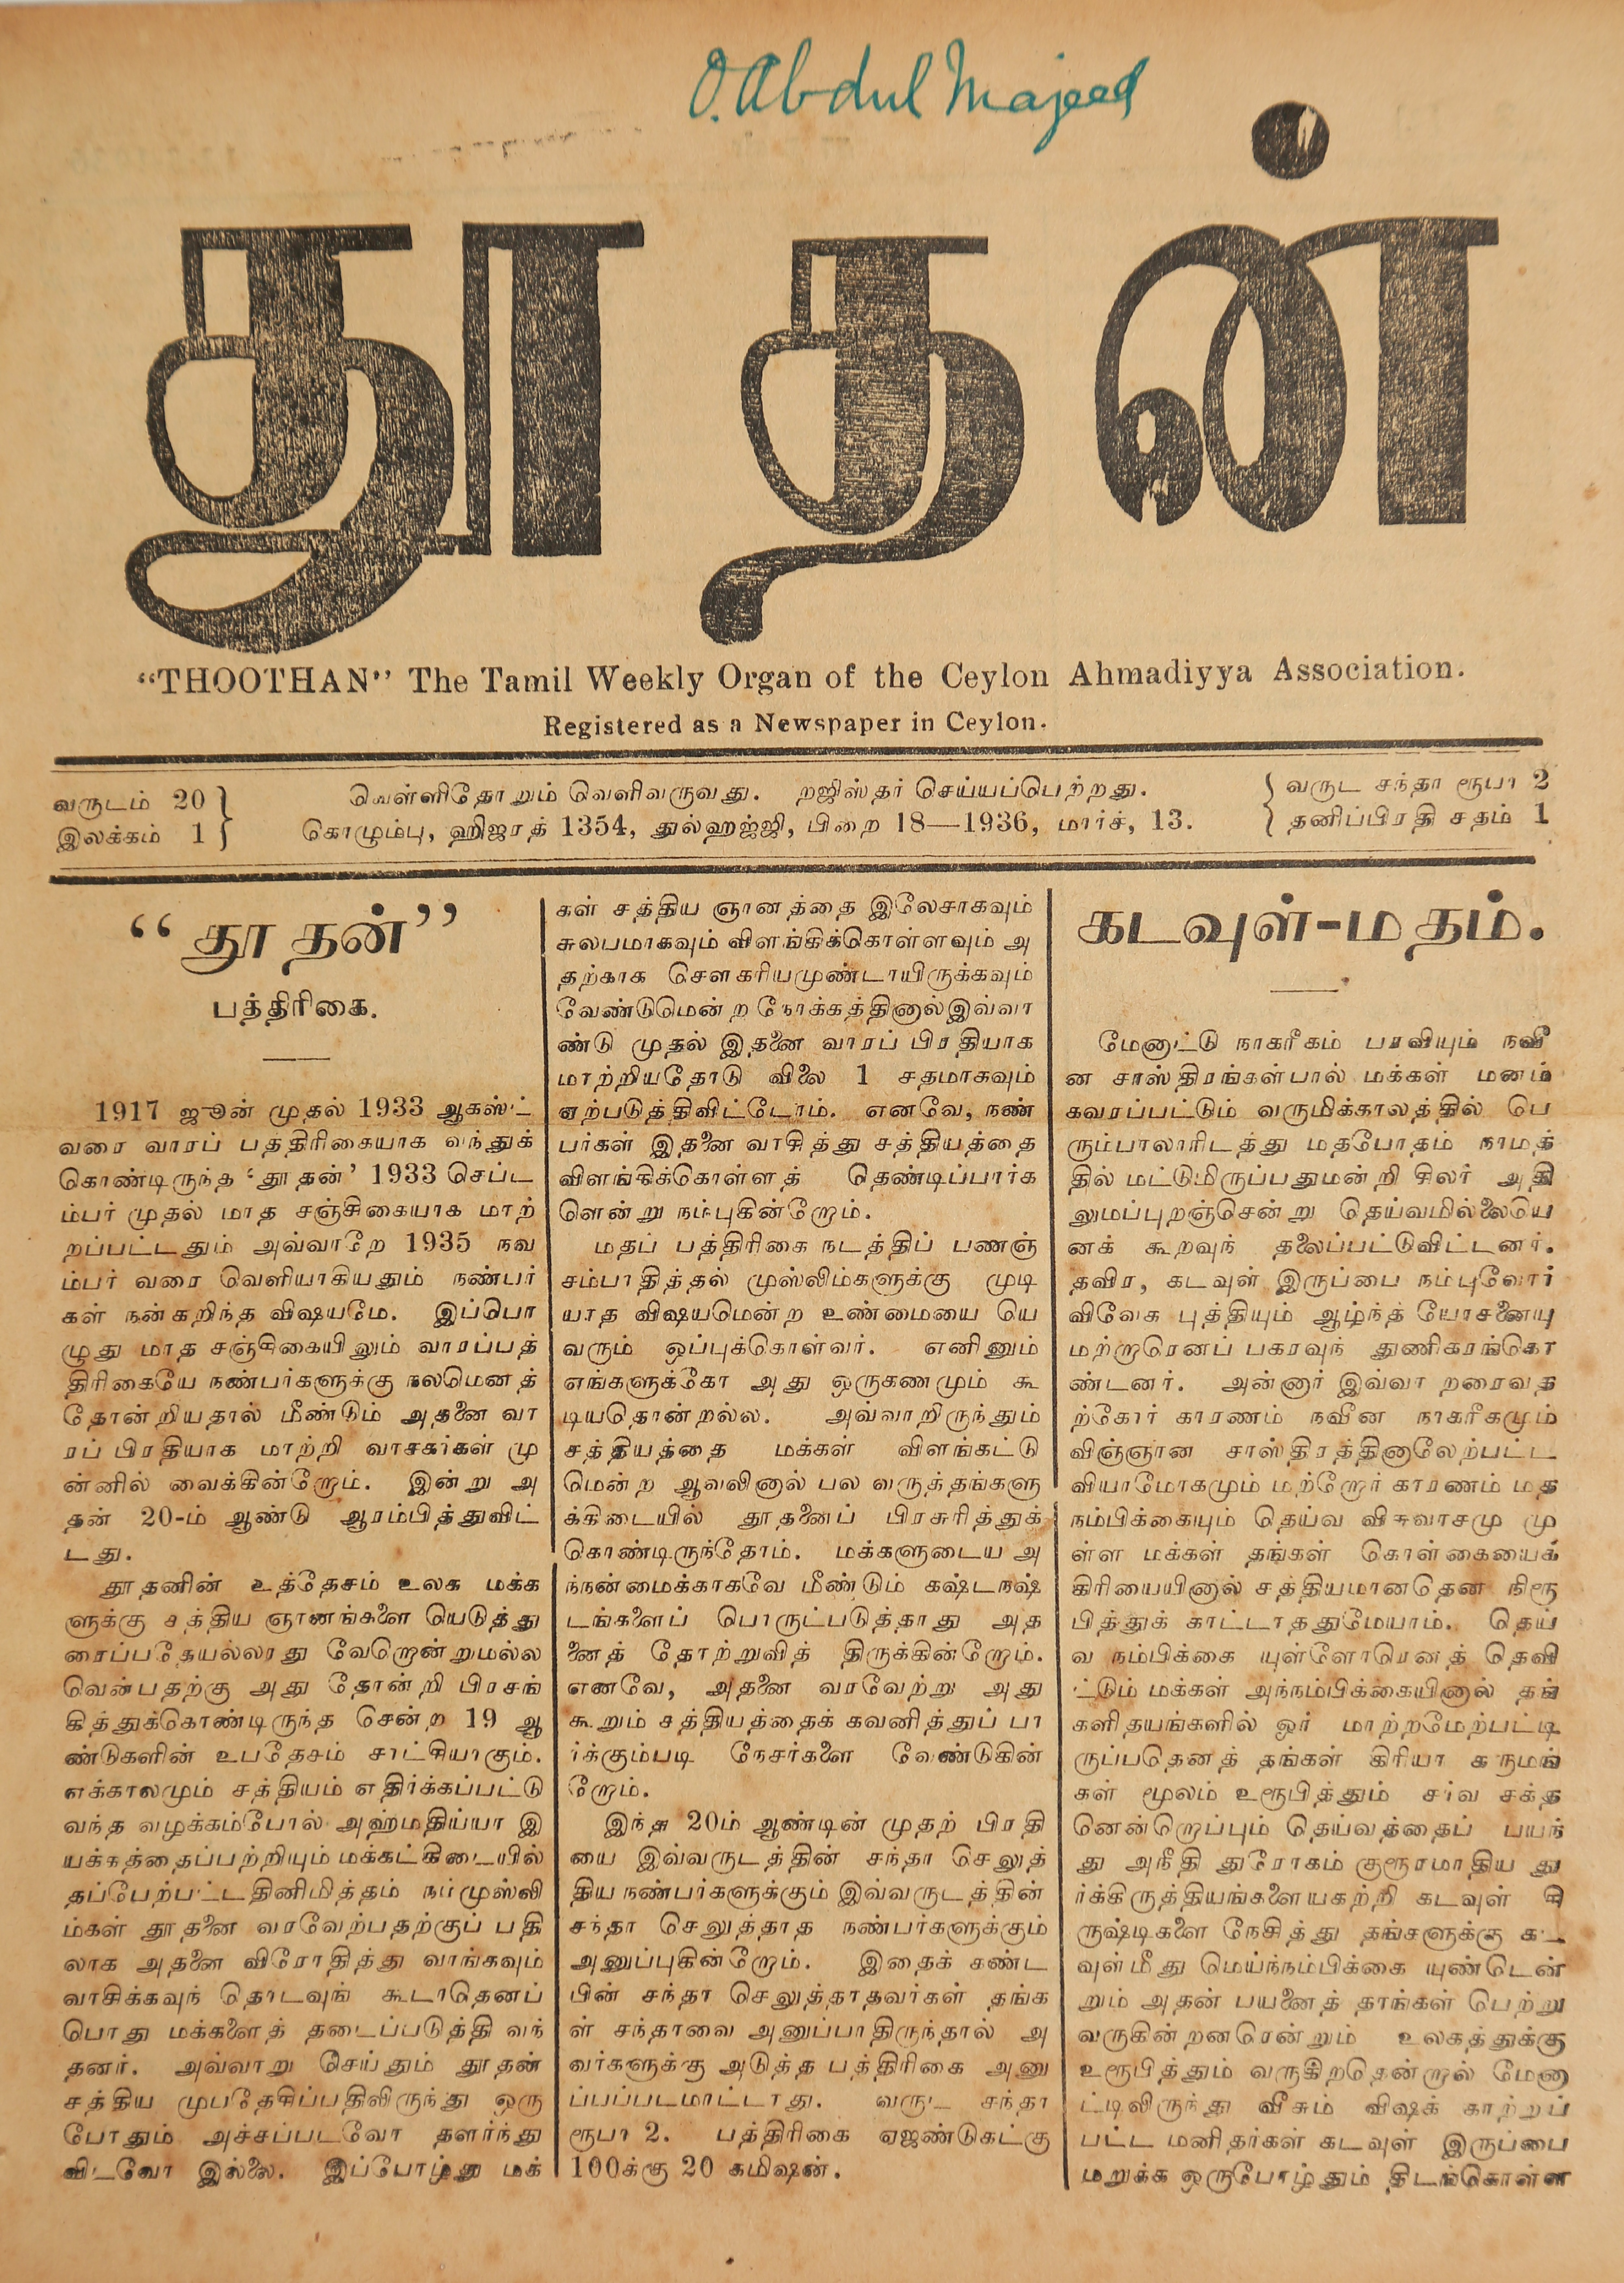 O. Abdul Majeed
தூதன்
"THOOTHAN" The Tamil Weekly Organ of the Ceylon Ahmadiyya Association.
Registered as a Newspaper in Ceylon.
வருடம் 20
இலக்கம் 1
வெள்ளிதோறும் வெளிவருவது. றஜிஸ்தர் செய்யப்பெற்றது.
கொழும்பு, ஹிஜரத் 1354, துல்ஹஜ்ஜி, பிறை 18—1936, மார்ச், 13.
வருட சந்தா ரூபா 2
தனிப்பிரதி சதம் 1
“தூதன்”
பத்திரிகை.
1917 ஜூன் முதல் 1933 ஆகஸ்ட்
வரை வாரப் பத்திரிகையாக வந்துக்
கொண்டிருந்த ‘தூதன்’ 1933 செப்ட
ம்பர் முதல் மாத சஞ்சிகையாக மாற்
றப்பட்டதும் அவ்வாறே 1935 நவ
ம்பர் வரை வெளியாகியதும் நண்பர்
கள் நன்கறிந்த விஷயமே. இப்பொ
ழுது மாத சஞ்சிகையிலும் வாரப்பத்
திரிகையே நண்பர்களுக்கு நலமெனத்
தோன்றியதால் மீண்டும் அதனை வா
ரப் பிரதியாக மாற்றி வாசகர்கள் மு
ன்னில் வைக்கின்றோம். இன்று அ
தன் 20-ம் ஆண்டு ஆரம்பித்துவிட்
டது.
தூதனின் உத்தேசம் உலக மக்க
ளுக்கு சத்திய ஞானங்களை யெடுத்து
ரைப்பதேயல்லாது வேறொன்றுமல்ல
வென்பதற்கு அது தோன்றி பிரசங்
கித்துக்கொண்டிருந்த சென்ற 19 ஆ
ண்டுகளின் உபதேசம் சாட்சியாகும்.
எக்காலமும் சத்தியம் எதிர்க்கப்பட்டு
வந்த வழக்கம்போல் அஹ்மதிய்யா இ
யக்கத்தைப்பற்றியும் மக்கட்கிடையில்
தப்பேற்பட்டதினிமித்தம் நம்முஸ்லி
ம்கள் தூதனை வரவேற்பதற்குப் பதி
லாக அதனை விரோதித்து வாங்கவும்
வாசிக்கவுந் தொடவுங் கூடாதெனப்
பொது மக்களைத் தடைப்படுத்தி வந்
தனர். அவ்வாறு செய்தும் தூதன்
சத்திய முபதேசிப்பதிலிருந்து ஒரு
போதும் அச்சப்படவோ தளர்ந்து
விடவோ இல்லை. இப்போழ்து மக்
கள் சத்திய ஞானத்தை இலேசாகவும்
சுலபமாகவும் விளங்கிக்கொள்ளவும் அ
தற்காக சௌகரியமுண்டாயிருக்கவும்
வேண்டுமென்ற நோக்கத்தினால் இவ்வா
ண்டு முதல் இதனை வாரப் பிரதியாக
மாற்றியதோடு விலை 1 சதமாகவும்
ஏற்படுத்திவிட்டோம். எனவே, நண்
பர்கள் இதனை வாசித்து சத்தியத்தை
விளங்கிக்கொள்ளத் தெண்டிப்பார்க
ளென்று நம்புகின்றோம்.
மதப் பத்திரிகை நடத்திப் பணஞ்
சம்பாதித்தல் முஸ்லிம்களுக்கு முடி
யாத விஷயமென்ற உண்மையை யெ
வரும் ஒப்புக்கொள்வர். எனினும்
எங்களுக்கோ அது ஒருகணமும் கூ
டியதொன்றல்ல. அவ்வாறிருந்தும்
சத்தியத்தை மக்கள் விளங்கட்டு
மென்ற ஆவலினால் பல வருத்தங்களு
க்கிடையில் தூதனைப் பிரசுரித்துக்
கொண்டிருந்தோம். மக்களுடைய அ
ந்நன்மைக்காகவே மீண்டும் கஷ்டநஷ்
டங்களைப் பொருட்படுத்தாது அத
னைத் தோற்றுவித் திருக்கின்றோம்.
எனவே, அதனை வரவேற்று அது
கூறும் சத்தியத்தைக் கவனித்துப் பா
ர்க்கும்படி நேசர்களை வேண்டுகின்
றோம்.
இந்த 20ம் ஆண்டின் முதற் பிரதி
யை இவ்வருடத்தின் சந்தா செலுத்
திய நண்பர்களுக்கும் இவ்வருடத்தின்
சந்தா செலுத்தாத நண்பர்களுக்கும்
அனுப்புகின்றோம். இதைக் கண்ட
பின் சந்தா செலுத்தாதவர்கள் தங்க
ள் சந்தாவை அனுப்பாதிருந்தால் அ
வர்களுக்கு அடுத்த பத்திரிகை அனு
ப்பப்படமாட்டாது. வருட சந்தா
ரூபா 2. பத்திரிகை ஏஜண்டுகட்கு
100க்கு 20 கமிஷன்.
கடவுள்-மதம்.
மேனாட்டு நாகரீகம் பரவியும் நவீ
ன சாஸ்திரங்கள்பால் மக்கள் மனம்
கவரப்பட்டும் வருமிக்காலத்தில் பெ
ரும்பாலாரிடத்து மதபோதம் நாமத்
தில் மட்டுமிருப்பதுமன்றி சிலர் அதி
லுமப்புறஞ்சென்று தெய்வமில்லையெ
னக் கூறவுந் தலைப்பட்டுவிட்டனர்.
தவிர, கடவுள் இருப்பை நம்புவோர்
விவேக புத்தியும் ஆழ்ந்த யோசனையு
மற்றாரெனப் பகரவுந் துணிகரங்கொ
ண்டனர். அன்னார் இவ்வா றரைவத
ற்கோர் காரணம் நவீன நாகரீகமும்
விஞ்ஞான சாஸ்திரத்தினாலேற்பட்ட
வியாமோகமும் மற்றோர் காரணம் மத
நம்பிக்கையும் தெய்வ விசுவாசமு மு
ள்ள மக்கள் தங்கள் கொள்கையைக்
கிரியையினால் சத்தியமானதென நிரூ
பித்துக் காட்டாததுமேயாம். தெய்
வ நம்பிக்கை யுள்ளோரெனத் தெவி
ட்டும் மக்கள் அந்நம்பிக்கையினால் தங்
களிதயங்களில் ஓர் மாற்றமேற்பட்டி
ருப்பதெனத் தங்கள் கிரியா கருமங்
கள் மூலம் உரூபித்தும் சர்வ சக்த
னென்றொப்பும் தெய்வத்தைப் பயந்
து அநீதி துரோகம் குரூரமாதிய து
ர்க்கிருத்தியங்களையகற்றி கடவுள் சி
ருஷ்டிகளை நேசித்து தங்களுக்கு கட
வுள்மீது மெய்ந்நம்பிக்கை யுண்டென்
றும் அதன் பயனைத் தாங்கள் பெற்று
வருகின்றனரென்றும் உலகத்துக்கு
உரூபித்தும் வருகிறதென்றால் மேனா
ட்டிலிருந்து வீசும் விஷக் காற்றுப்
பட்ட மனிதர்கள் கடவுள் இருப்பை
மறுக்க ஒருபோழ்தும் திடங்கொள்ள